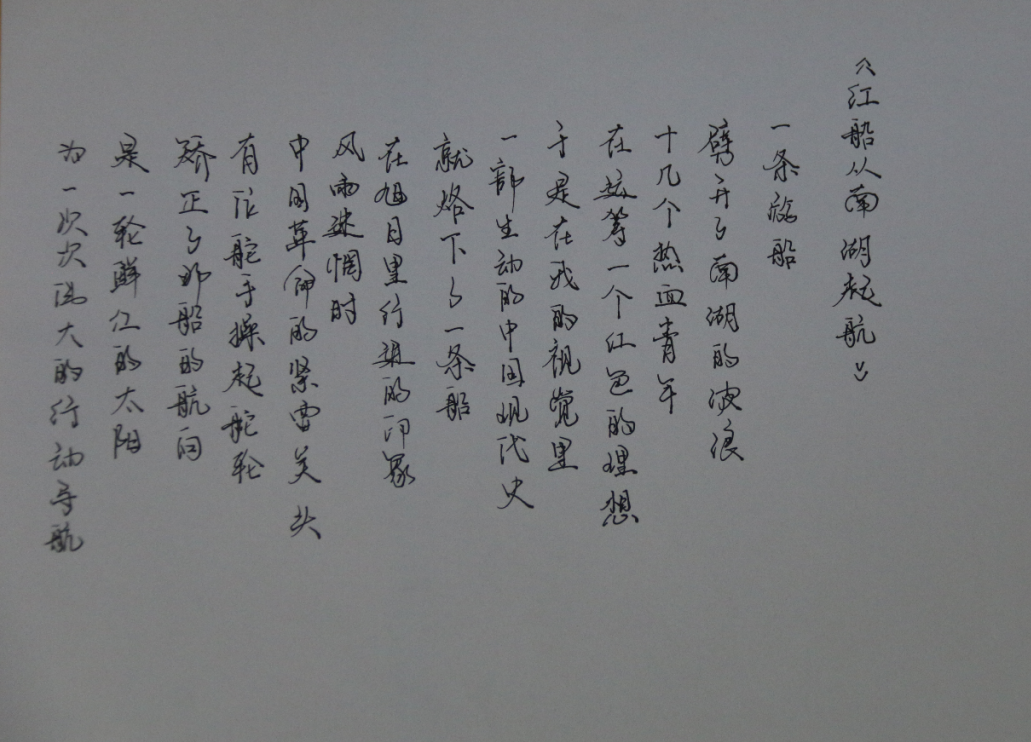 《红船从南湖起航》
一条航船
劈开了南湖的波浪
十几个热血青年
在运筹一个红色的理想
于是在我的视觉里
一部生动的中国现代史
就烙下了一条船
在旭日里行进的印象
风雨迷惘时
中国革命的紧要关头
有位舵手操起舵轮
矫正了那船的航向
是一轮鲜红的太阳
为一次次伟大的行动导航